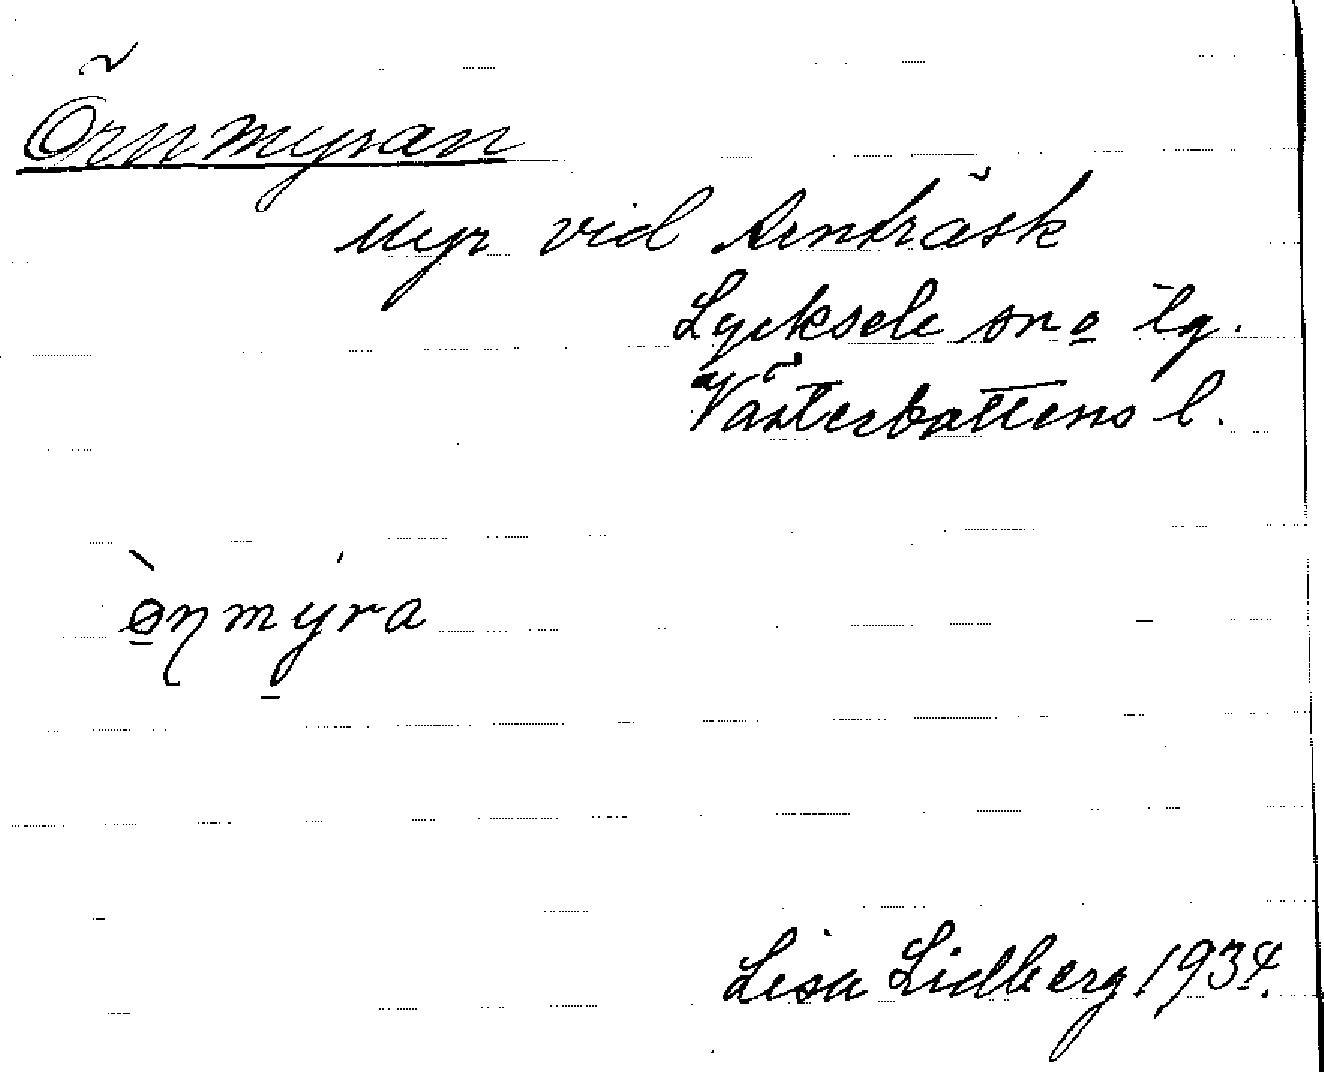 Örnmyran
Myr vid Arnträsk
Lycksele sn o tg.
Västerbottens l.
ò̱ŋmý̱ra
Lisa Lidberg 1934.